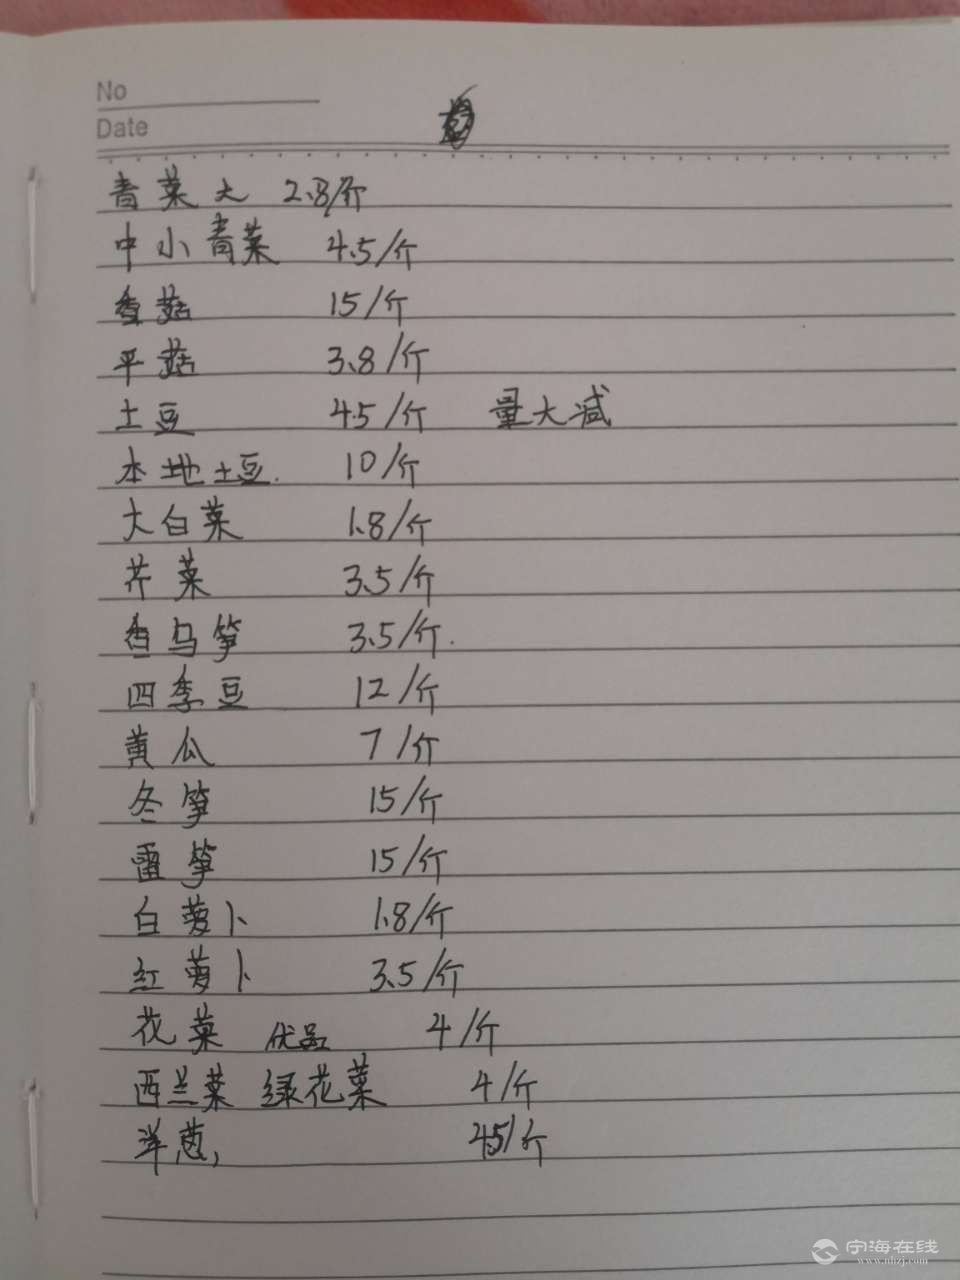 No
Date
青菜大 2.8/斤
中小青菜 4.5/斤
香菇 15/斤
平菇 3.8/斤
土豆 4.5/斤 量大减
本地土豆. 10/斤
大白菜 1.8/斤
芹菜 3.5/斤
乌笋 3.5/斤.
四季豆 12/斤
黄瓜 7/斤
冬笋 15/斤
雷笋 15/斤
白萝卜 1.8/斤
红萝卜 3.5/斤
花菜 优品 4/斤
西兰菜 绿花菜 4/斤
洋葱, 4.5/斤
宁海在线
www.nhzj.com